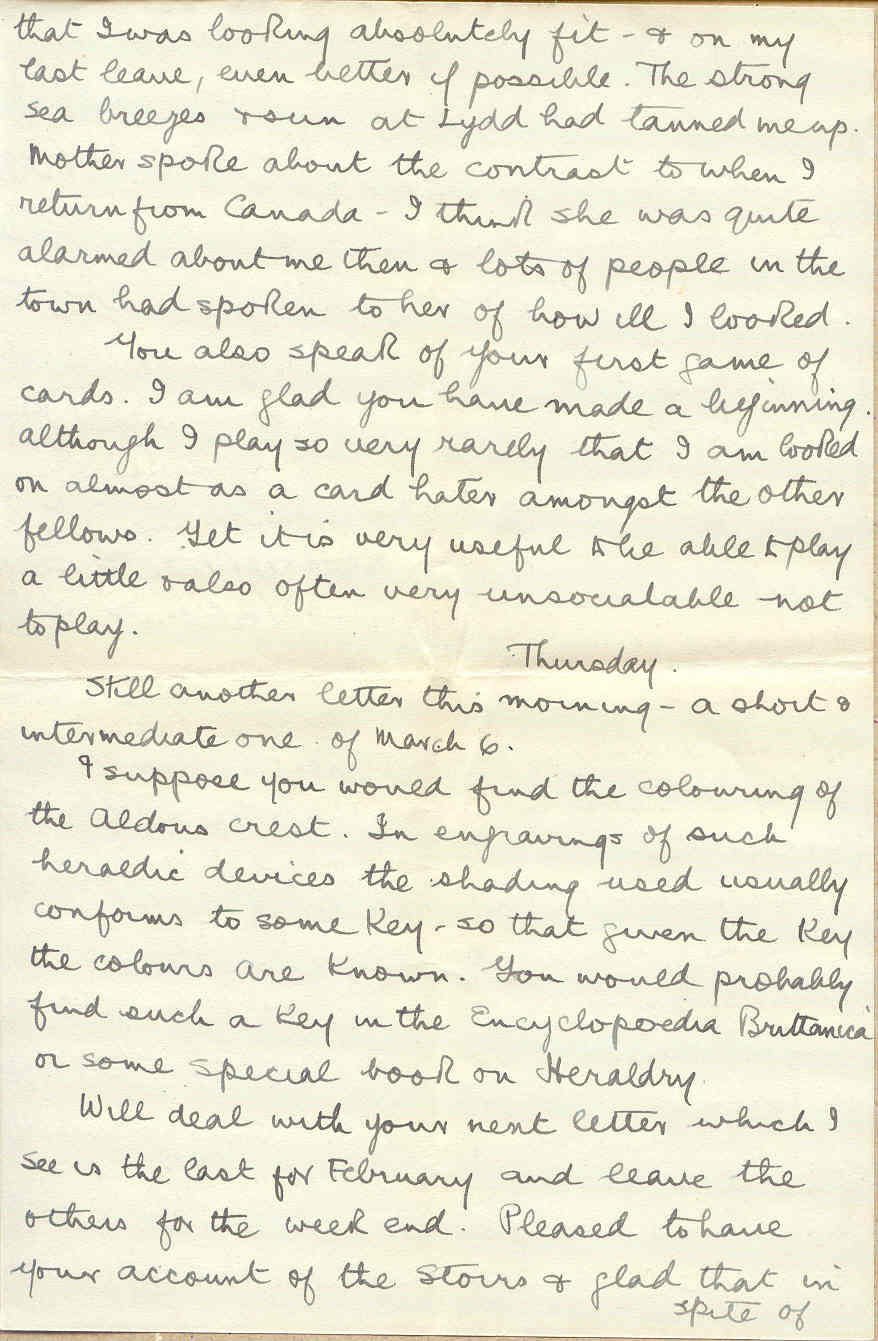 that I was looking absolutely fit - & on my
last leave, even better if possible. The strong
sea breezes & sun at Lydd had tanned me up.
Mother spoke about the contrast to when I
return from Canada - I think she was quite
alarmed about me then & lots of people in the
town had spoken to her of how ill I looked.
You also speak of your first game of
cards. I am glad you have made a beginning.
although I play so very rarely that I am looked
on almost as a card hater amongst the other
fellows. Yet it is very useful to be able to play
a little & also often very unsociable not
to play.
Thursday.
Still another letter this morning - a short &
intermediate one of March 6.
I suppose you would find the colouring of
the Aldous crest. In engravings of such
heraldic devices the shading used usually
conforms to some Key - so that given the Key
the colours are known. You would probably
find such a Key in the Encyclopoedia Brittanica
or some special book on Heraldry.
Will deal with your next letter which I
see is the last for February and leave the
others for the week end. Pleased to have
your account of the Stoirs & glad that in
spite of